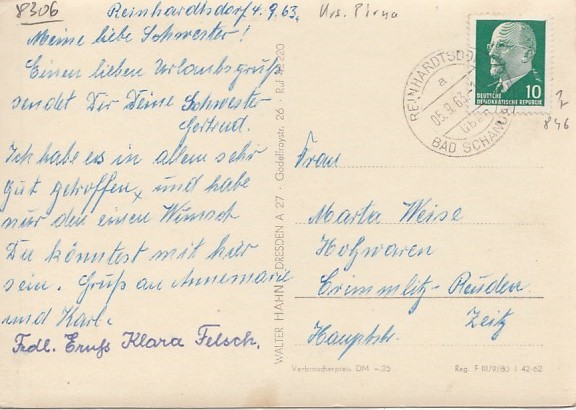 8306
Reinhardtsdorf 4.9.63.
Krs. Pirna
Meine liebe Schwester!
Einen lieben Urlaubsgruß
sendet Dir Deine Schwester
Gertrud.
Ich habe es in allem sehr
gut getroffen, und habe
nur den einen Wunsch
Du könntest mit hier
sein. Gruß an Annemarie
und Karl.
Frdl. Gruß Klara Felsch.
WALTER HAHN · DRESDEN A 27 · Godeffroystr. 26 · Ruf 4 220
REINHARDTSDORF
a
05.9.63
über
BAD SCHANDAU
10
DEUTSCHE
DEMOKRATISCHE REPUBLIK
846
Frau
Marta Weise
Holzwaren
Crimmlitz-Reuden
Zeitz
Hauptstr.
Verbraucherpreis DM -.25
Reg. F III/9/80 1 42-62